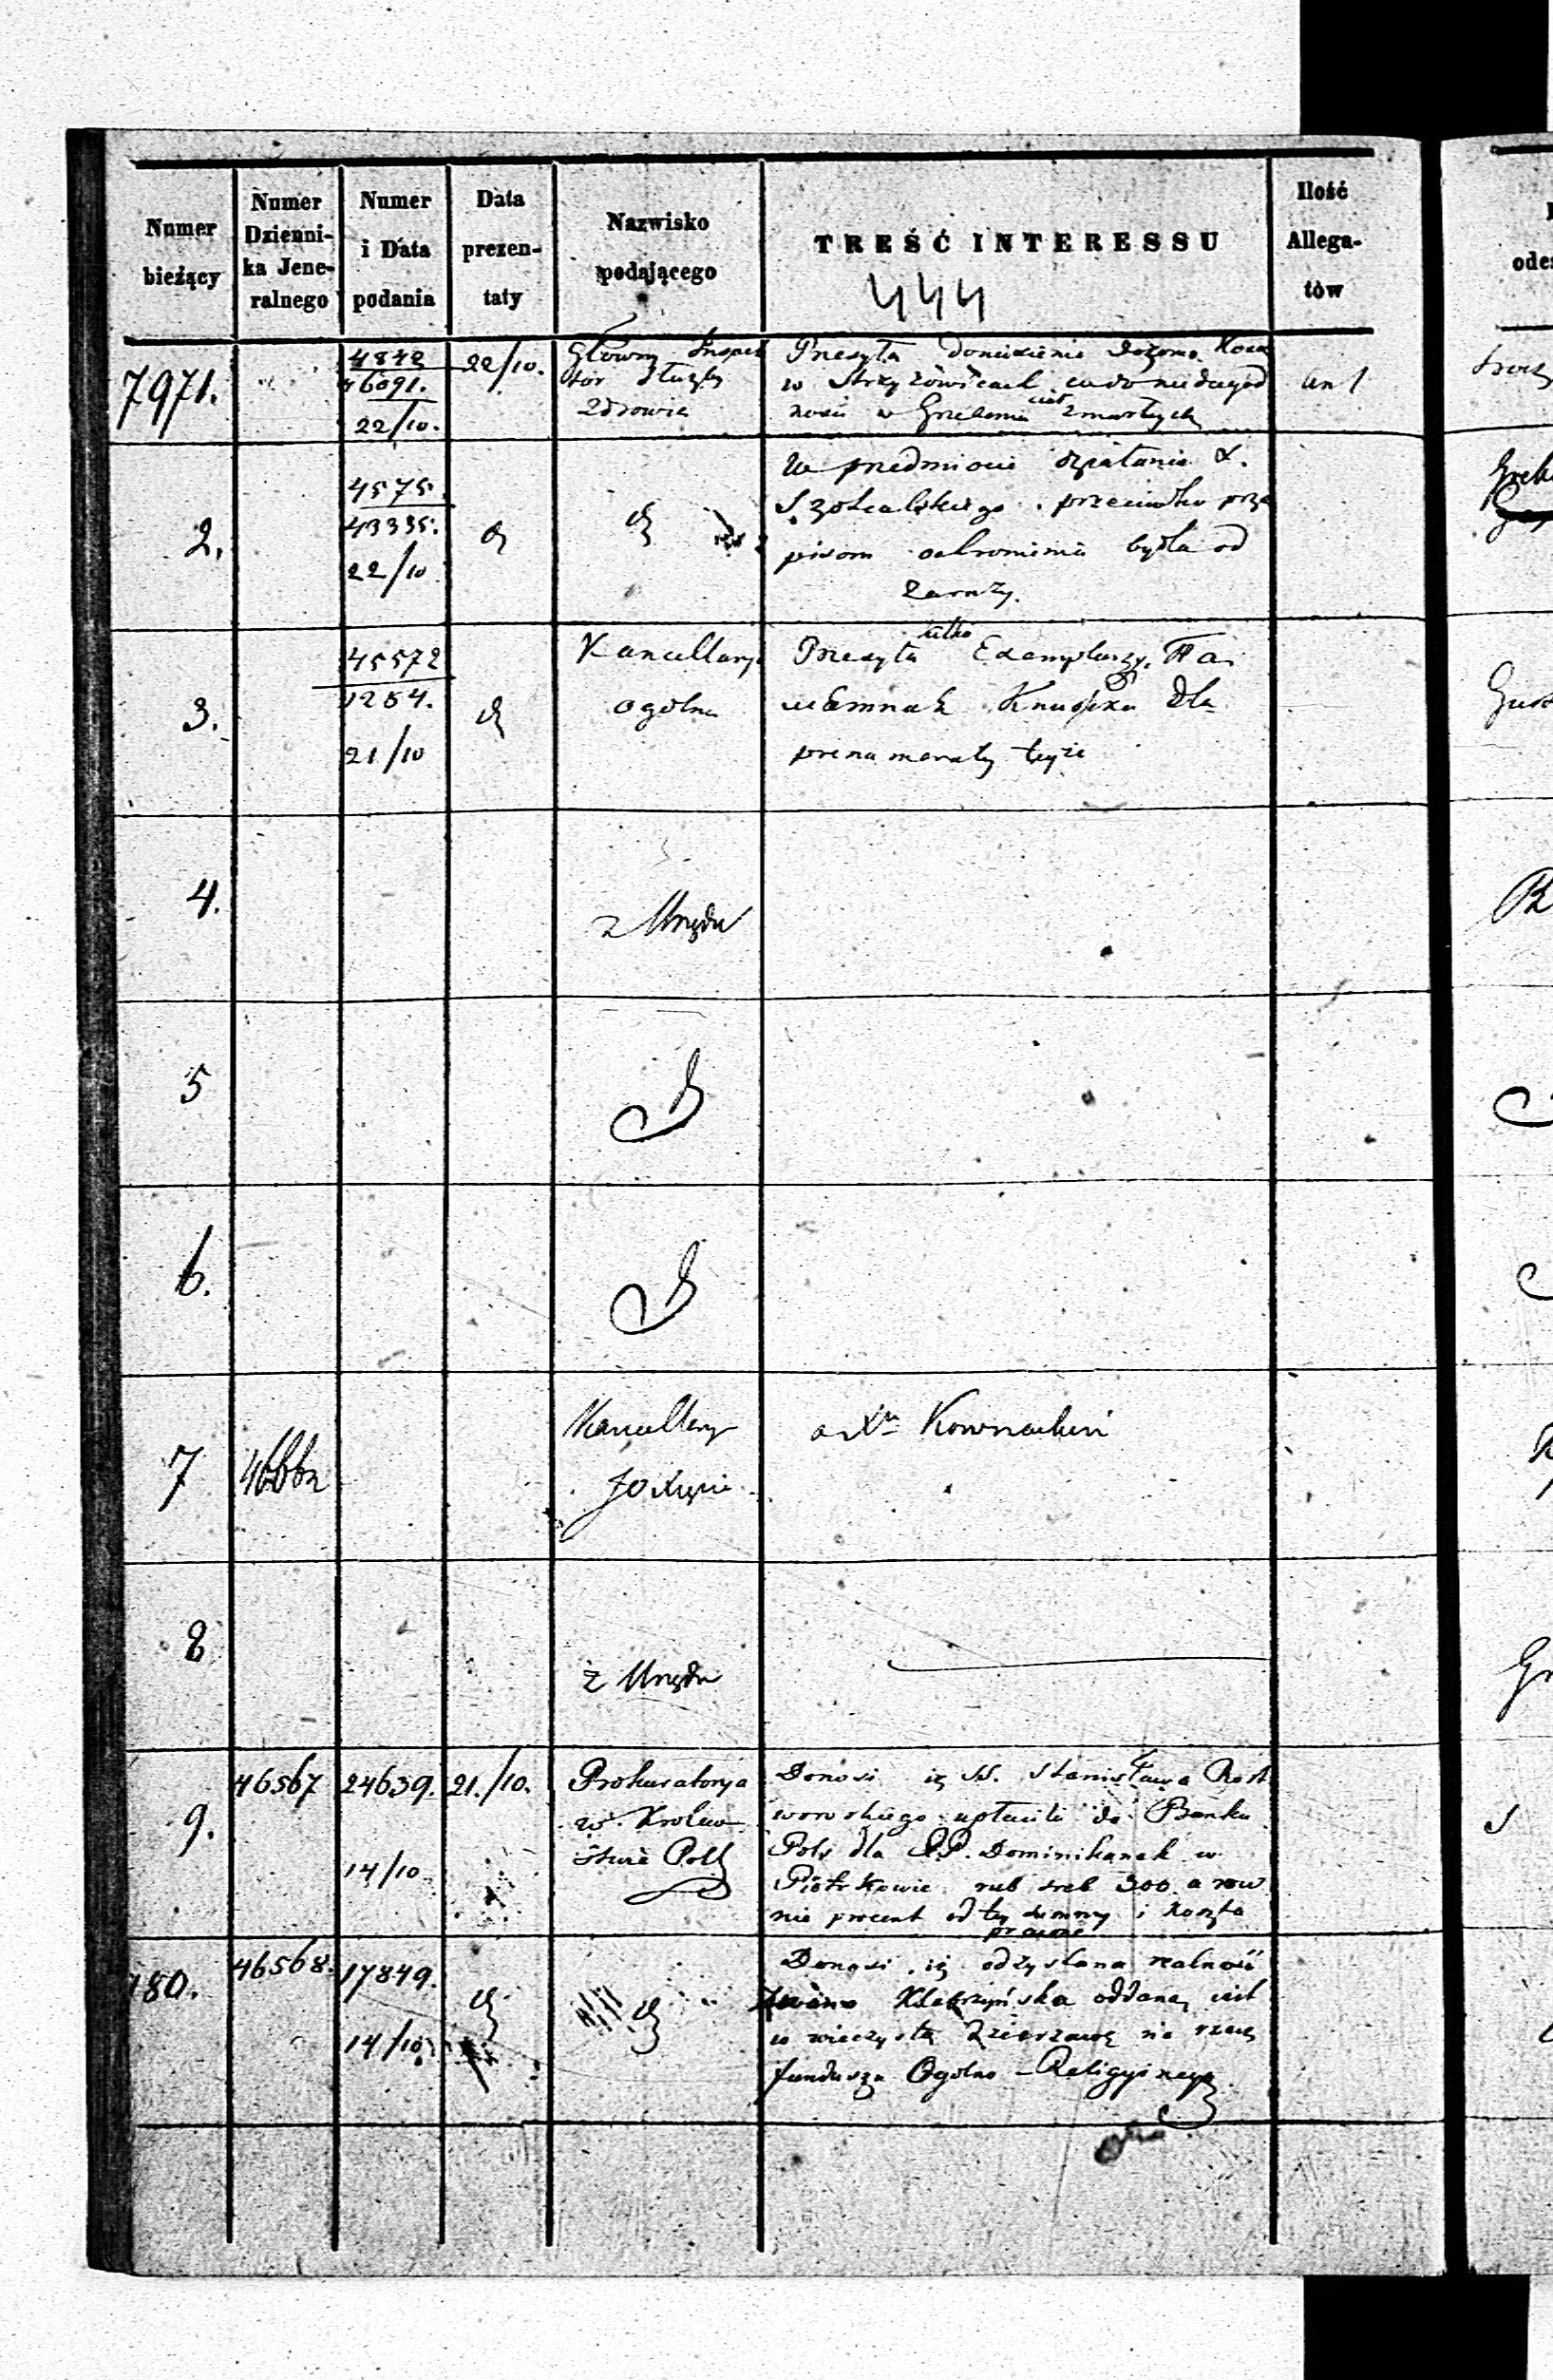 Numer bieżący
Numer Dzienni-ka Jene-ralnego
Numer i Data podania
Data prezen-taty
Nazwisko podającego
TREŚĆ INTERESSU
Ilość Allega-tów
444
7971.
4842
46091.
22/10.
22/10.
Główny Inspek
tor Służby
Zdrowia
Przesyła doniesienie Dozoru Kośc
w Strzyżowicach co do niedogod
ności w Grzebaniu ciał zmarłych
an 1
2.
4575.
43335.
22/10
W przedmiocie działania X.
przeciwko prze
pisom ochronienia bydła od
Zarazy.
3.
45572
1254.
21/10
Kancellarya
ogólna
Przesyła Exemplarzy
dla
prenumeraty tejże
4.
z Urzędu
5
6.
7
Kancellarya
JO Xięcia
Kownacki
8
z Urzędu
9.
46567
24639.
14/10
21./10.
Prokuratorya
w Królew
stwie Pols
Donosi iż SS. Stanisława Rost
worowskiego upłacili do Banku
Pols dla P.P. Dominikanek w
Piotrkowie rub sreb 300 a rów
nie procent od tej summy i koszta
prawne
180.
46568.
17849.
14/10
Donosi iż odzyskana realność
zwana oddaną jest
w wieczystą Dzierżawę na rzecz
funduszu Ogólno-Religijnego